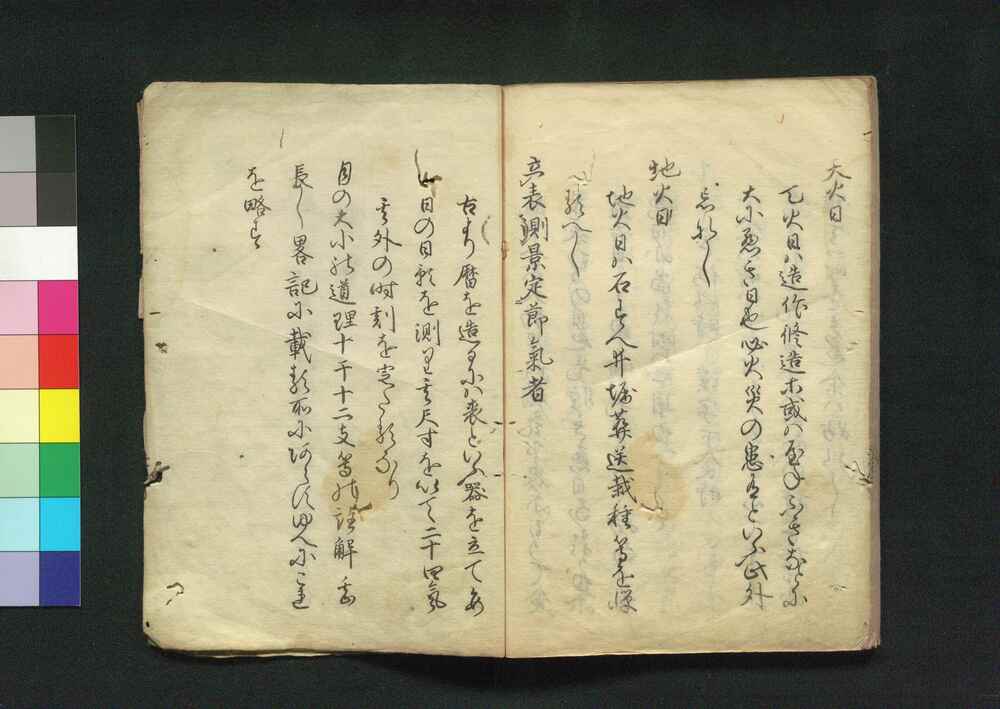 大火日
天火日ハ造作修造等或ハ屋ねふき などに
大に悪き日也必火災の患有といふ此外
忌なし
地火日
地火日ハ石すへ井堀葬送栽種等を深
くべし
立表測景定節氣者
古より暦を造るにハ表といふ器を立て毎
日の日影を測りて其尺寸を以て二十四氣
其外の時刻を定たるなり
月の大小の道理十干十二支等の註解
長々しく畧記に載る所にあらざるゆへにこれ
を略す